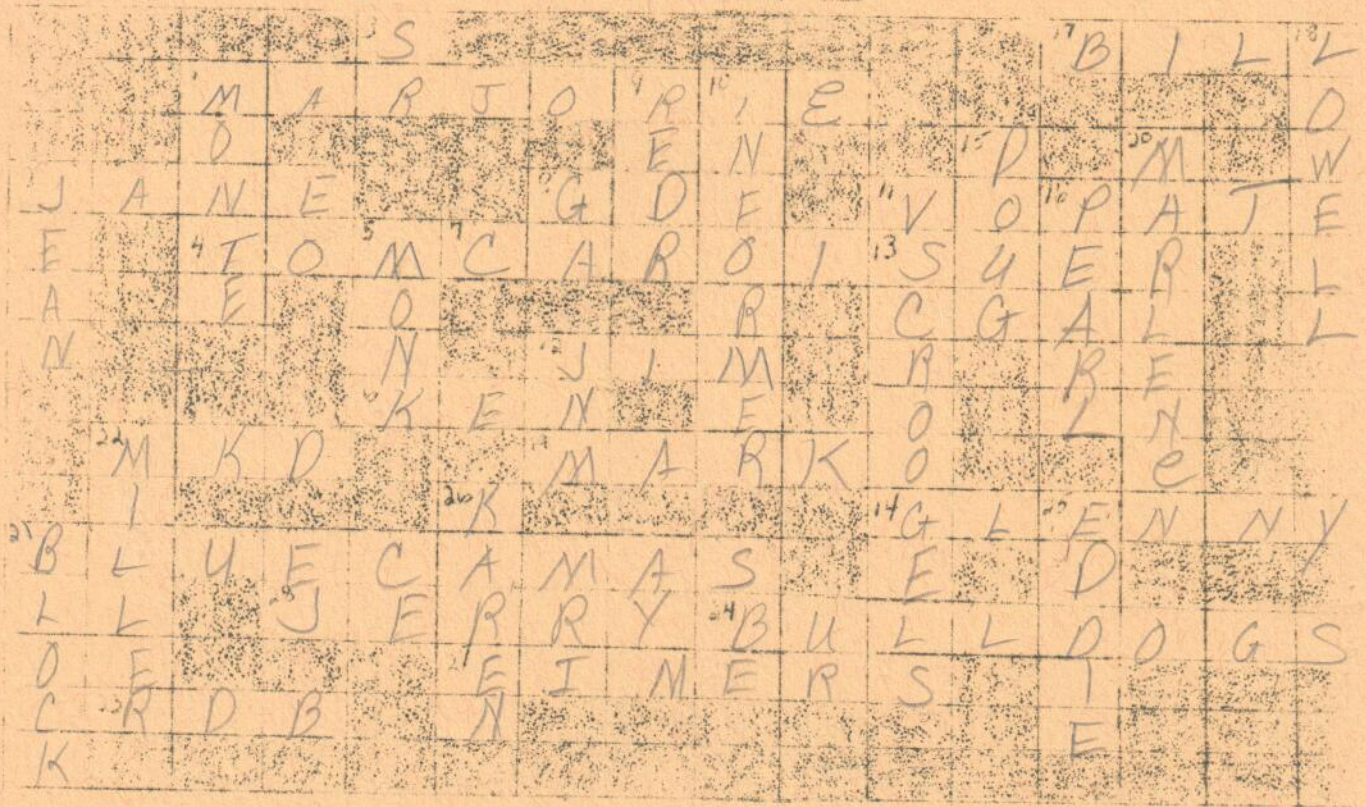 3 S 17 B I L 18 L
1 M A R J O 9 R 10 I E O
O E N 15 D 20 M W
J A N E G D E 11 V O 16 P A T E
E 4 T O 5 M 7 C A R O I 13 S U E R L
A E O R C G A L L
N N J I M R R E
K E N E O L N
22 M K D M A R K O e
I 26 K 14 G L E N N Y
B L U E C A M A S E D
L L 28 J E R R Y 24 B U L L D O G S
O E E I M E R S I
C R D B N E
K